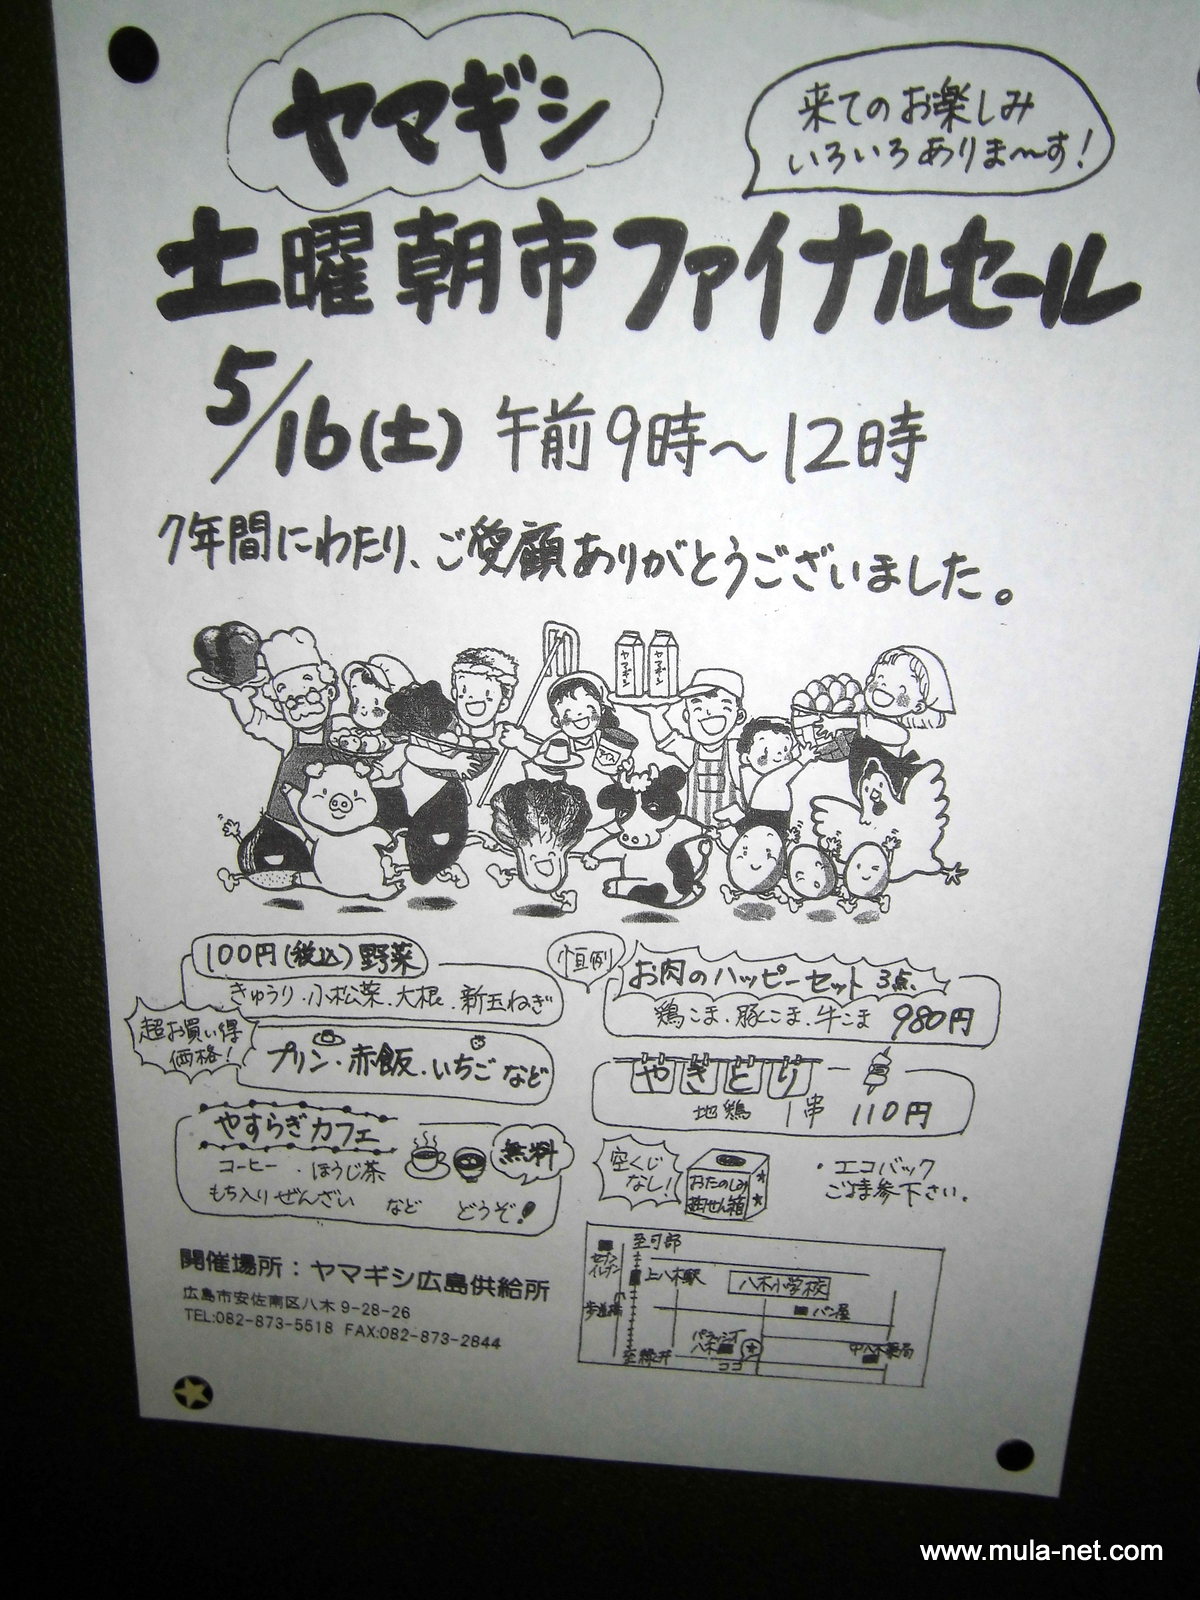 ヤマギシ
来てのお楽しみ
いろいろありま〜す!
土曜朝市ファイナルセール
5/16(土) 午前9時〜12時
7年間にわたり、ご愛顧ありがとうございました。
ヤマギシ
ヤマギシ
100円(税込)野菜
きゅうり・小松菜・大根・新玉ねぎ
超お買い得
価格!
プリン・赤飯・いちごなど
やすらぎカフェ
コーヒー・ほうじ茶
もち入りぜんざい など
無料
どうぞ!
恒例
お肉のハッピーセット 3点、
鶏こま・豚こま・牛こま 980円
やきとり
地鶏 1串 110円
空くじ
なし!
おたのしみ
抽せん箱
・エコバック
ご持参下さい。
開催場所:ヤマギシ広島供給所
広島市安佐南区八木9-28-26
TEL:082-873-5518 FAX:082-873-2844
至可部
セブン
イレブン
上八木駅
八木小学校
歩道橋
パン屋
八木
ココ
中八木薬局
至緑井
www.mula-net.com